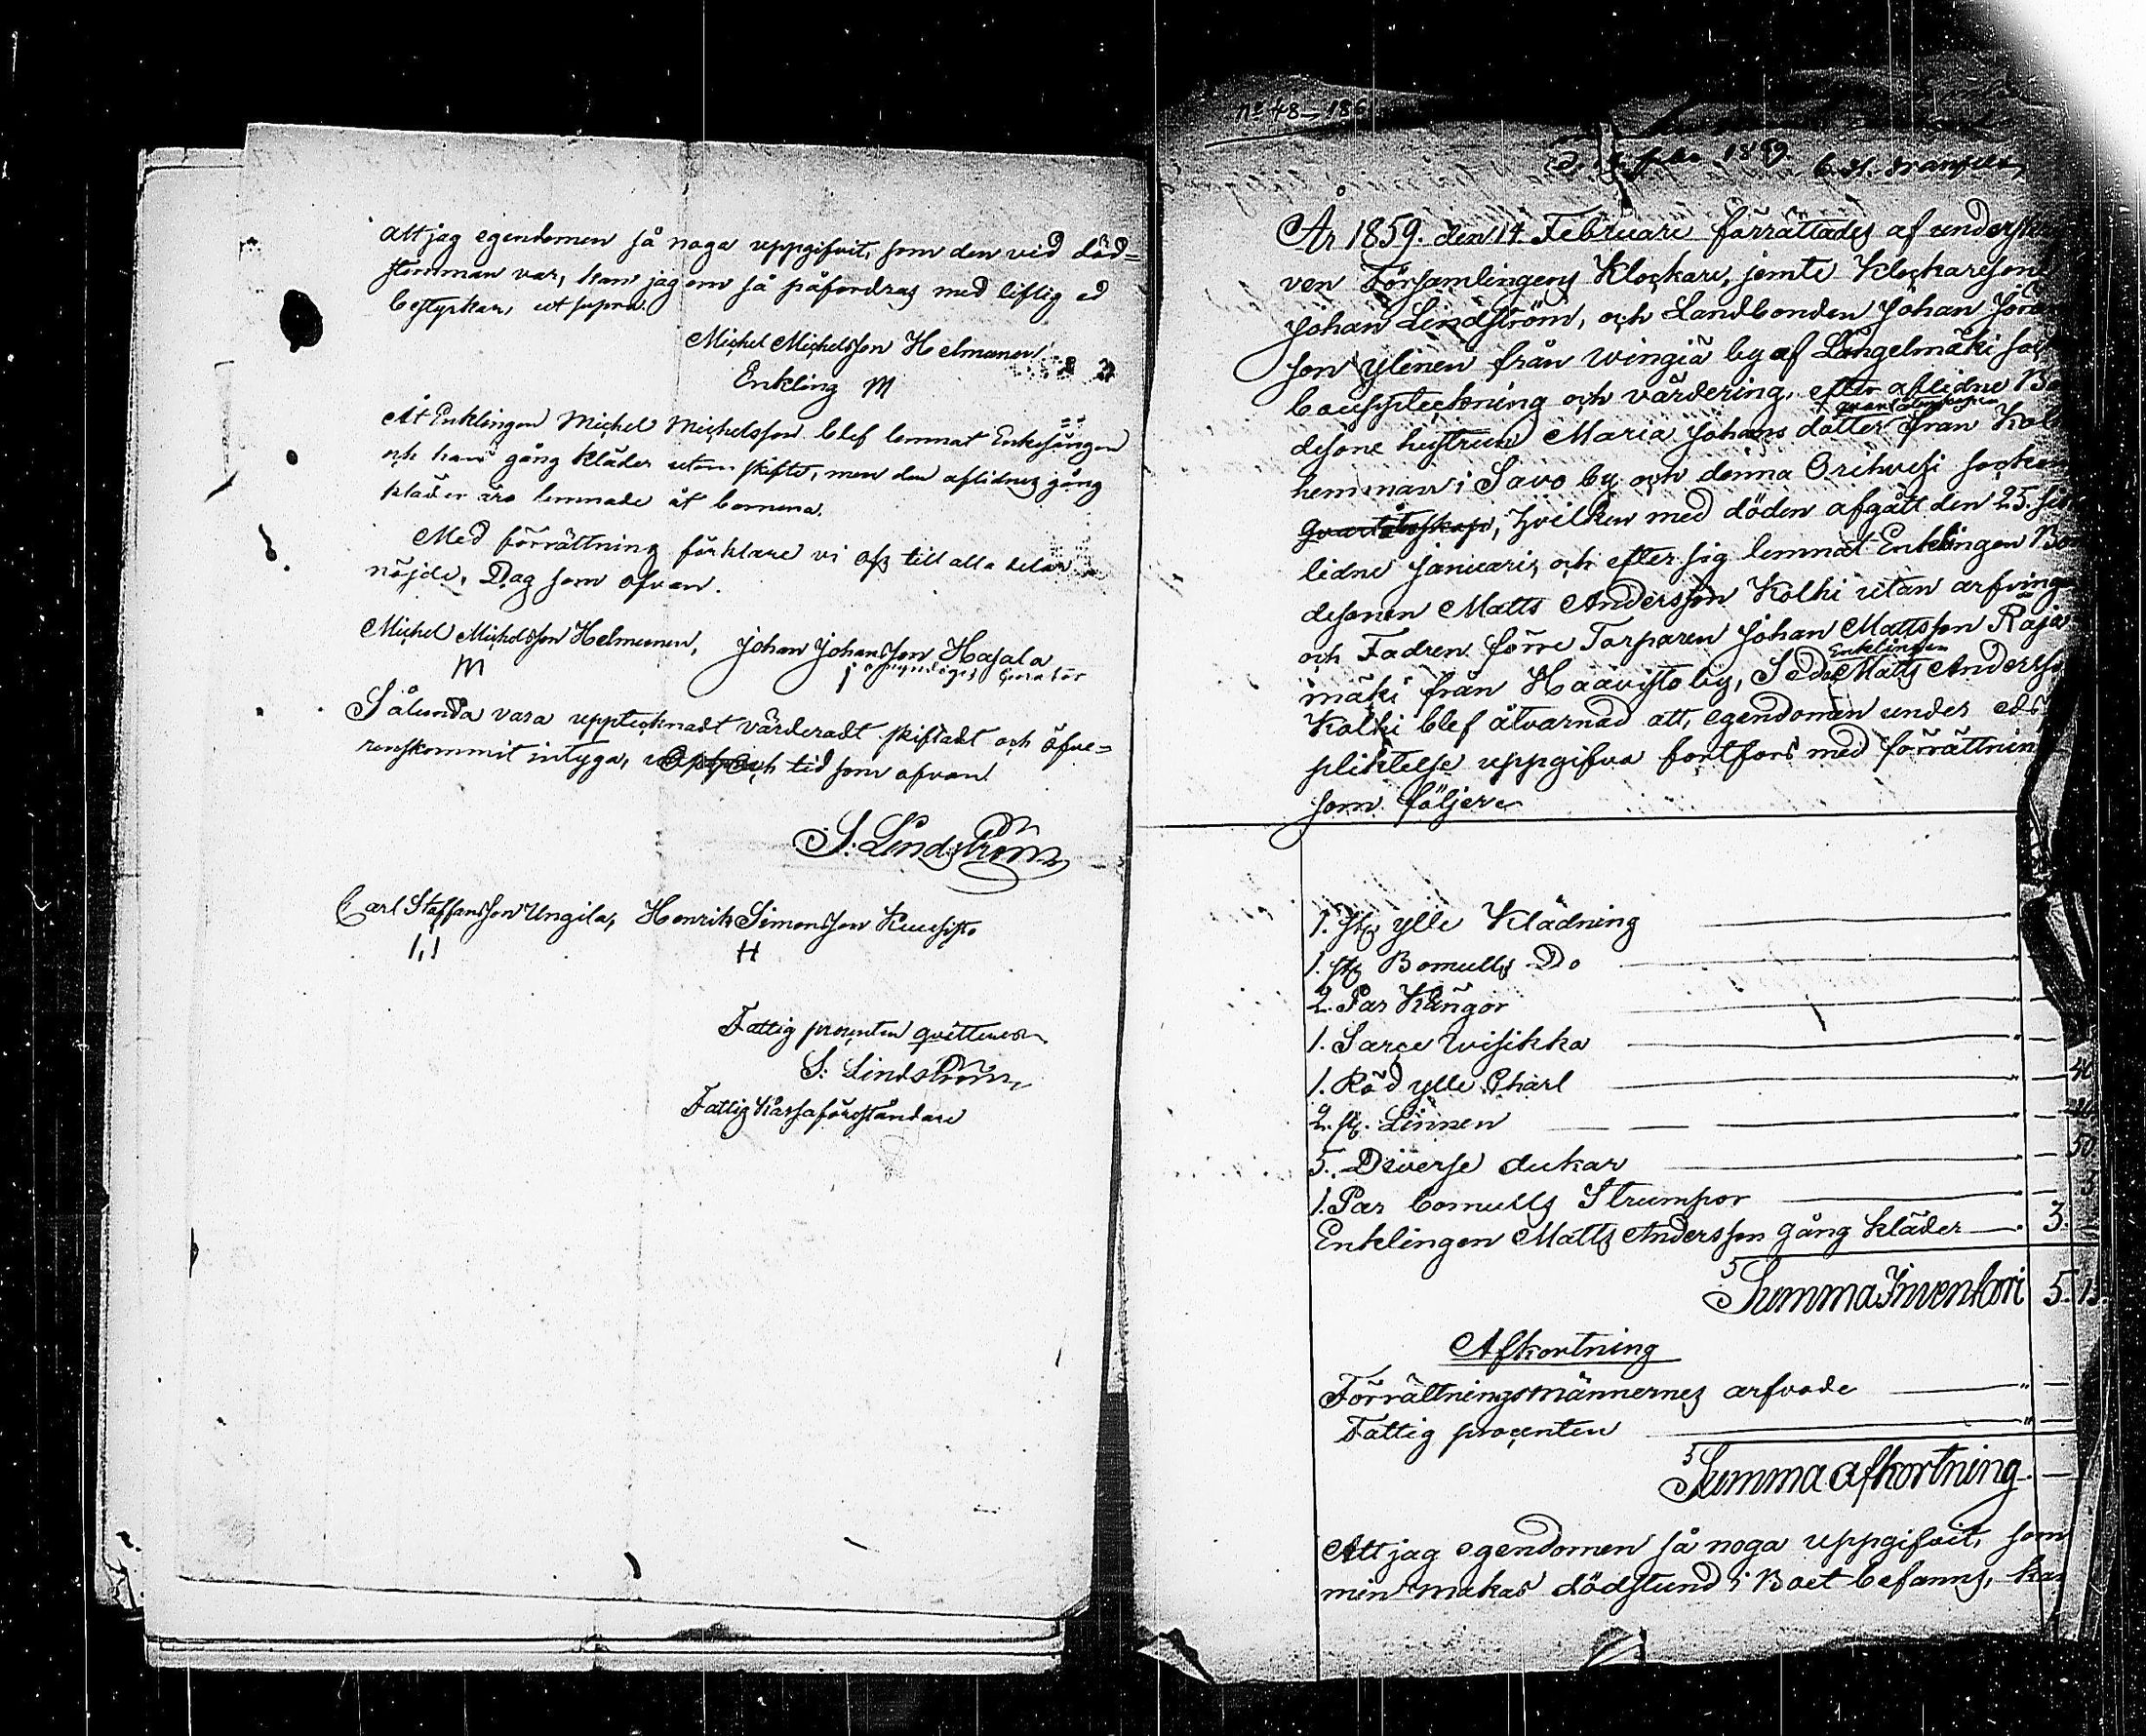 att jag egendomen så noga uppgifvit, som den vid död=
stimman var, kan jag om så påfordras med liflig ed
bestyrkar, ut supra.
Michel Michelsson Helmunen
Enkling M
Åt Enklingen Michel Michelsson blef lemnat Enkesängen
och hans gång kläder utom skiftet, men den aflidnes gång
kläder äro lemnade åt barnena.
Med förrättning förklare vi oss till alla delar
nöjde, Dag som ofvan.
Michel Michelsson Helmunen, Johan Johansson Hajala
M omyndiges Curator
Sålunda vara upptecknadt värderadt skiftadt och öfve=
renskommit intyga, tid som ofvan
S: Lindström
Carl Staffansson Ungila, Henrik Simonsson Kuusisto
I,I H
Fattig procenten qvitteras
S: Lindström
Fattig Kassaföreståndare
No 48 — 186
1859
År 1859. den 14. Februari förrättades af underskri
ven Församlingens Klockare, jemte Klockaresone
Johan Lindström, och Landbonden Johan Jöran
son Ylinen från Wingiä by af Längelmäki soc
bouppteckning och värdering, efter aflidne Bo
desone hustrun Maria Johans dotter från Kol
hemman i Savo by och denna Orihvesi socken
hvilken med döden afgått den 25. sis
lidne Januari, och efter sig lemnat Enklingen Bon
desonen Matts Andersson Kolhi utan arfvinga
och Fadren förre Torparen Johan Mattsson Raja
mäki från Haavisto by, Sedan Enklingen Matts Anderss
Kolhi blef åtvarnad att, egendomen under eds
pliktelse uppgifva fortfors med förrättnin
som följer
1. st ylle Klädning
1. st Bomulls Do
2. Par Kängor
1. Sarce Wisikka
1. Röd ylle Charl 40
2. st. Linnen
5. Diverse dukar 50
1. Par bomulls Strumpor
Enklingen Matts Andersson gång kläder 3.
Summa Inventari 5.
Afkortning
Förrättningsmännernes arfvode
Fattig procenten
Summa afkortning
Att jag egendomen så noga uppgifvit, som
min makas dödstund i Boet befanns, kan